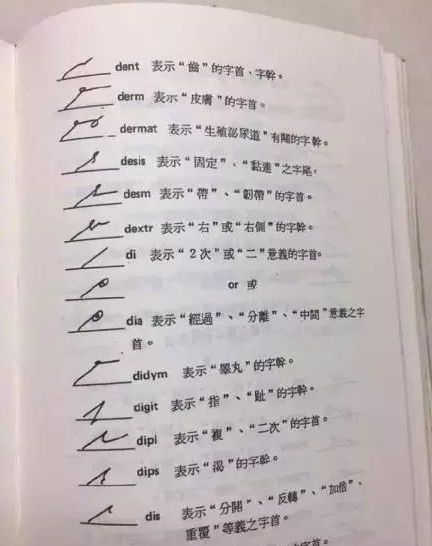 dent 表示“齒”的字首、字幹。
derm 表示“皮膚”的字首。
dermat 表示“生殖泌尿道”有關的字幹。
desis 表示“固定”、“黏連”之字尾。
desm 表示“帶”、“韌帶”的字首。
dextr 表示“右”或“右側”的字幹。
di 表示“2次”或“二”意義的字首。
or 或
dia 表示“經過”、“分離”、“中間”意義之字
首。
didym 表示“睪丸”的字幹。
digit 表示“指”、“趾”的字幹。
dipl 表示“複”、“二次”的字首。
dips 表示“渴”的字幹。
dis 表示“分開”、“反轉”、“加倍”、
重覆”等義之字首。